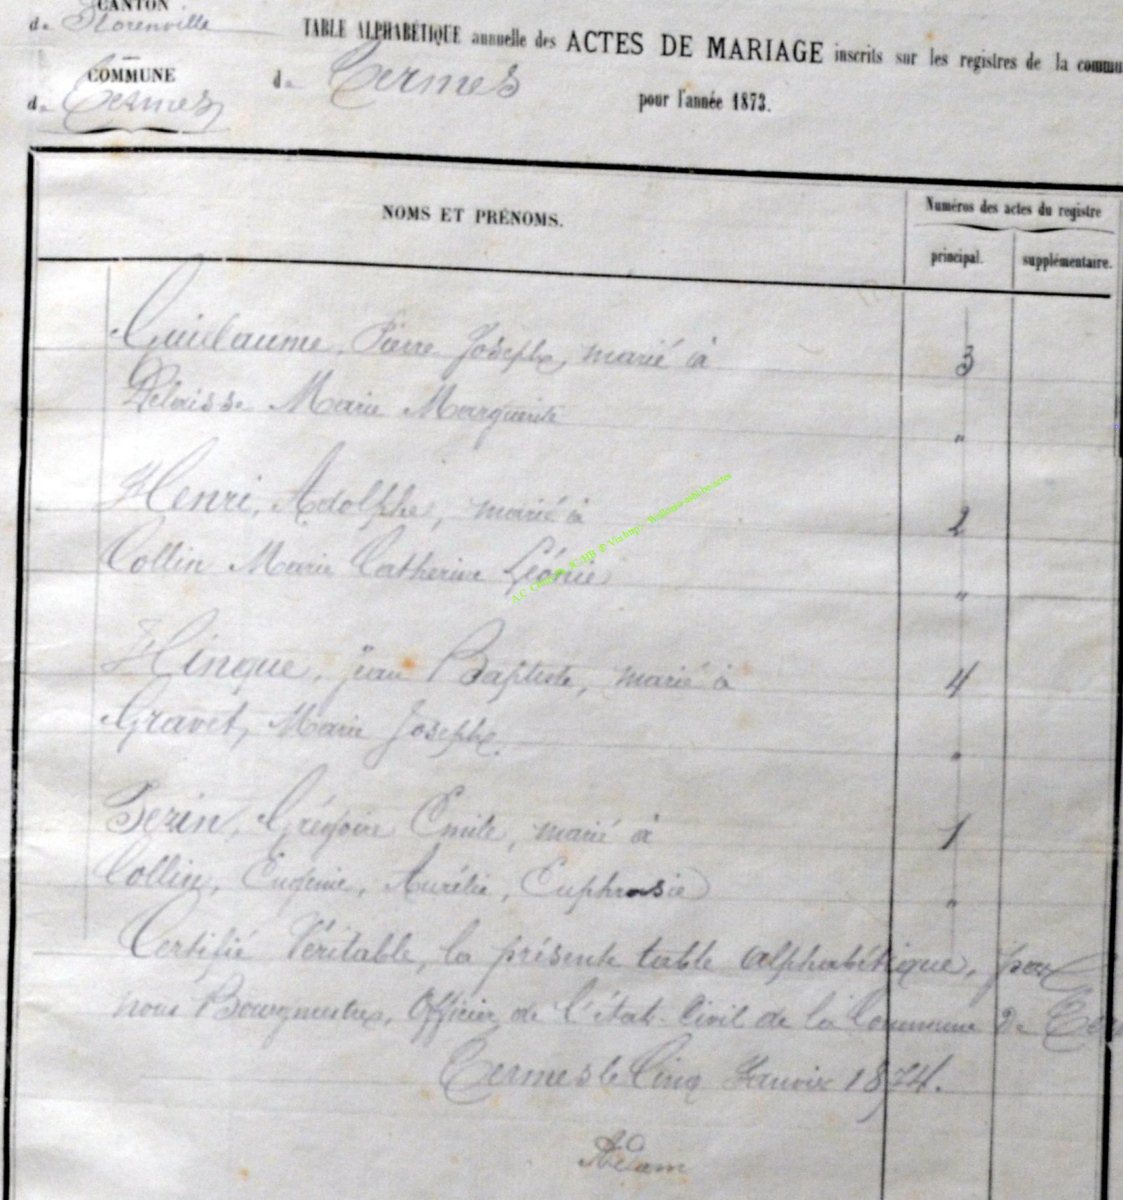 CANTON
de Florenville
TABLE ALPHABÉTIQUE annuelle des ACTES DE MARIAGE inscrits sur les registres de la commu
COMMUNE
de Termes
de Termes
pour l'année 1873.
NOMS ET PRÉNOMS.
Numéros des actes du registre
principal.
supplémentaire.
Guillaume, Pierre Josephe, marié à 3
Marie Marguerite "
Henri, Adolphe, marié à 2
Collin Marie Catherine Léonie "
Hinque, Jean Baptiste, marié à 4
Gravet, Marie Josephe. "
Grégoire Emile, marié à 1
Collin, Eugénie, Aurélie, Euphrasie "
Certifié Véritable, la présente table alphabétique, par
nous Bourgmestre, Officier de l'état-Civil de la Commune de
Termes le Cinq Janvier 1874.
Adam